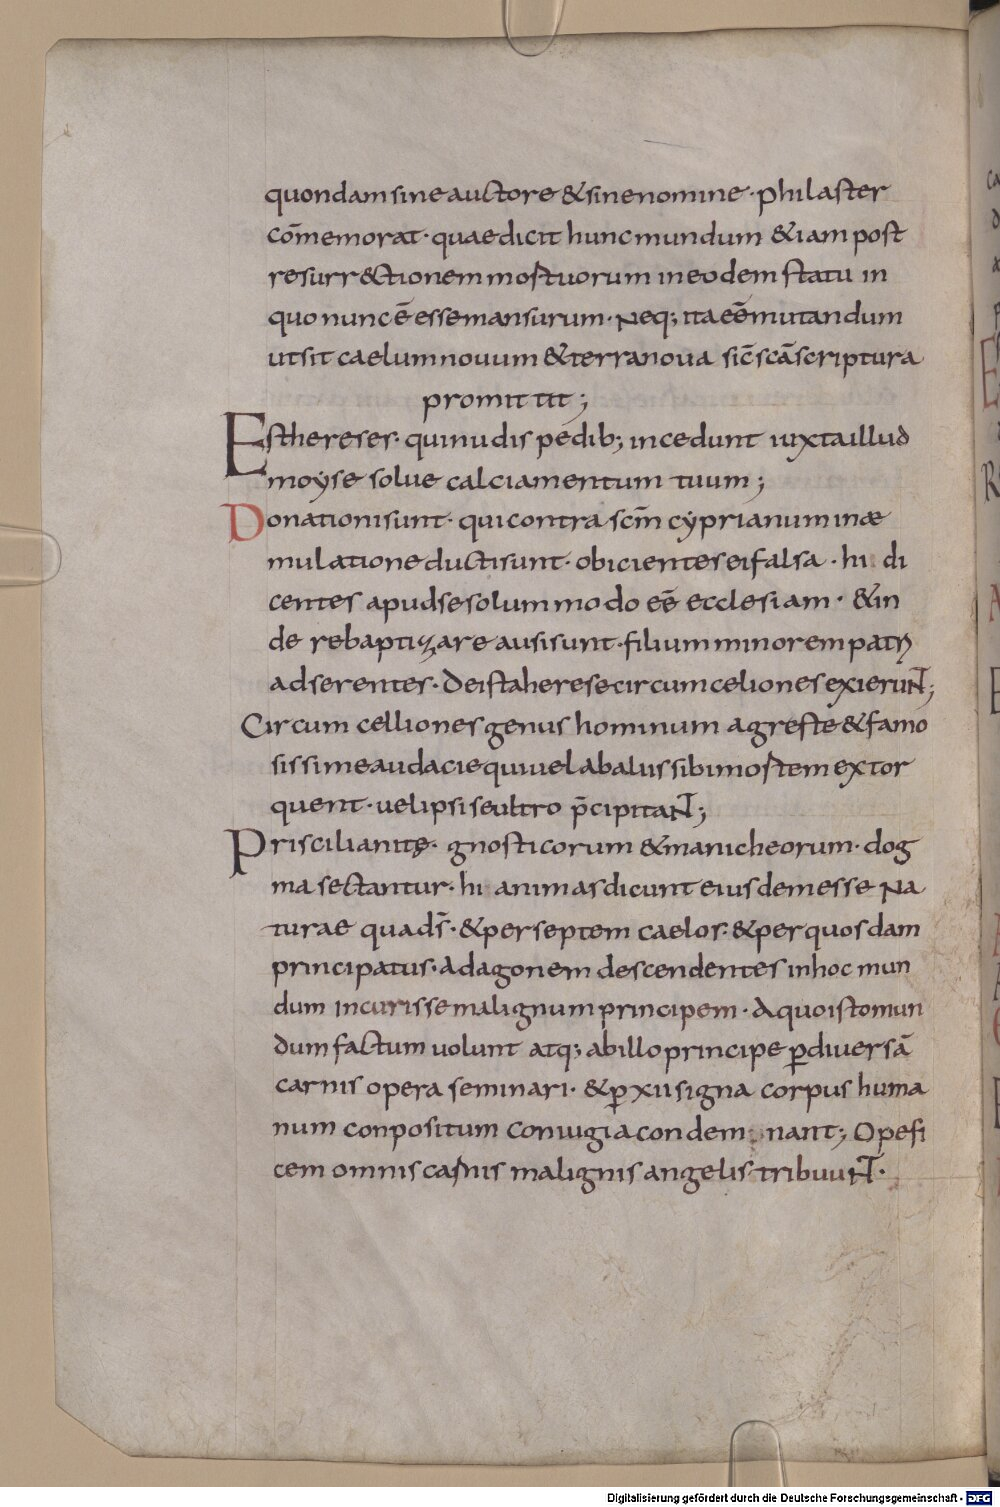 quondam sine auctore & sine nomine · philaster
cōmemorat · quae dicit hunc mundum & iam post
resurr&ctionem mortuorum in eodem statu in
quo nunc ē esse mansurum · Neq; ita eē mutandum
ut sit caelum nouum & terra noua sič scā scriptura
promittit ;
Est hereses · qui nudis pedib; incedunt iuxta illud
moyse solue calciamentum tuum ;
Donationi sunt · qui contra scm̄ cyprianum inæ
mulatione ducti sunt · obicientes ei falsa · hi di
centes apud se solum modo eē ecclesiam · & in
de rebaptizare ausi sunt · filium minorem patri
adserentes · De ista herese circumceliones exierunt ;
Circumcelliones genus hominum agreste & famo
sissime audacie qui uel ab alus sibi mortem extor
quent · uel ipsi se ultro p̄cipitant ;
Priscilianitę · gnosticorum & manicheorum · dog
ma sectantur · hi animas dicunt eiusdem esse na
turae qua ds̄ · & per septem caelos · & per quosdam
principatus · ad agonem descendentes in hoc mun
dum incurisse malignum principem · A quo isto mun
dum factum uolunt atq; ab illo principe ꝑ diuersā
carnis opera seminari · & ꝑ xii signa corpus huma
num conpositum coniugia condemnant ; Opefi
cem omnis carnis malignis angelis tribuunt ·
Digitalisierung gefördert durch die Deutsche Forschungsgemeinschaft - DFG